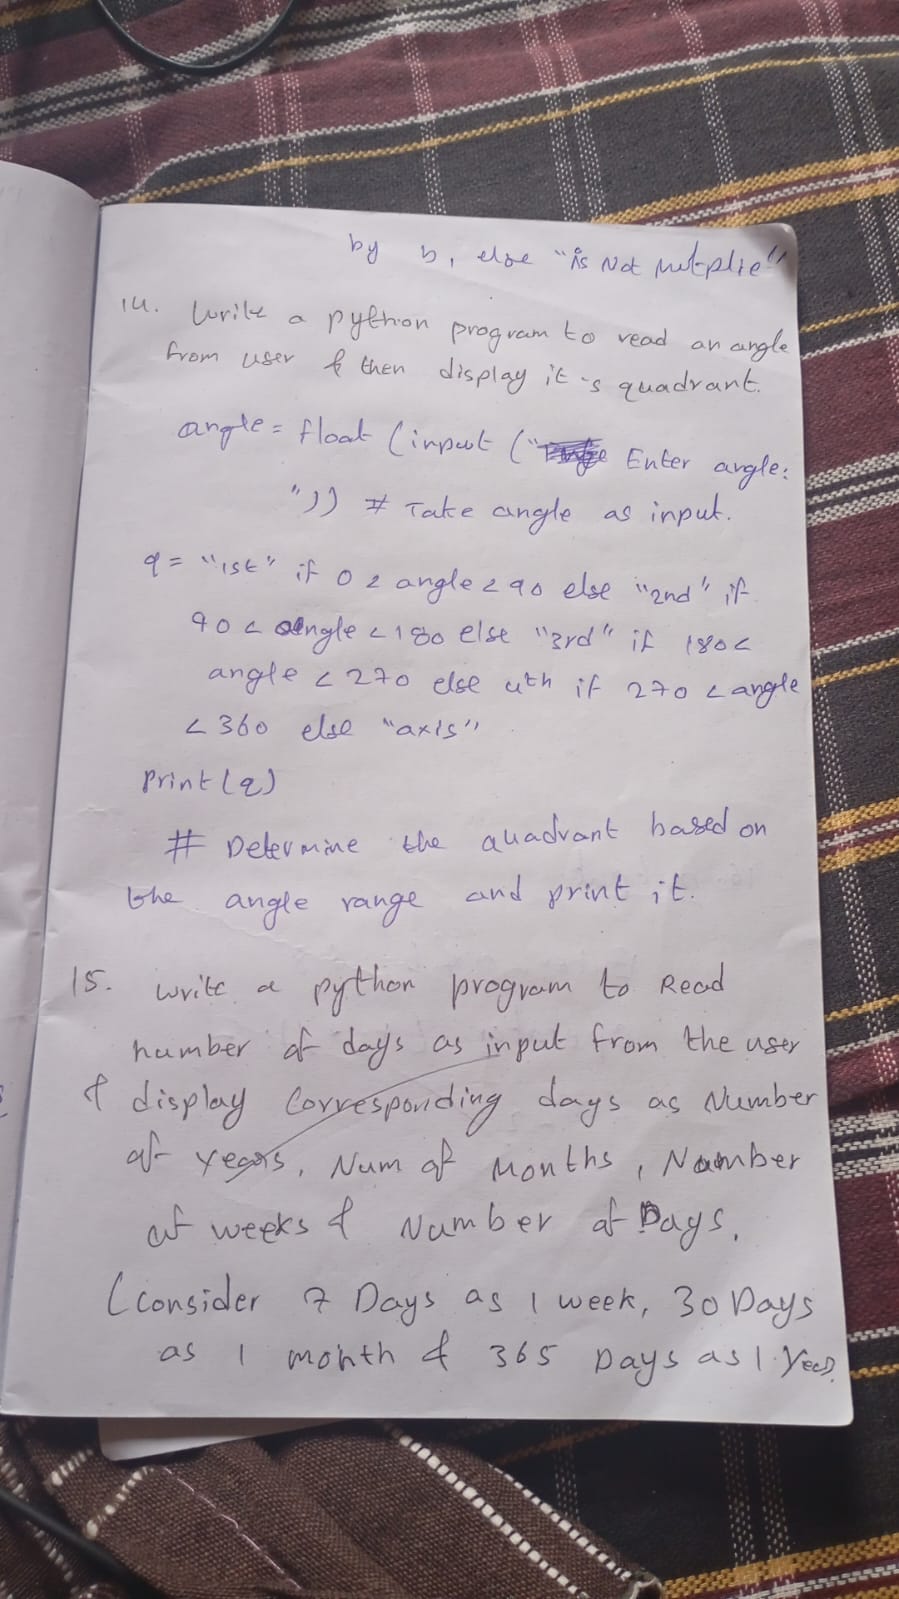 by b, else "is Not Mutiplie"
14. Write a python program to read an angle
from user & then display it's quadrant.
angle = float (input (" Enter angle:
")) # Take angle as input.
q = "1st" if 0 < angle < 90 else "2nd" if
90 < angle < 180 else "3rd" if 180 <
angle < 270 else 4th if 270 < angle
< 360 else "axis"
Print(q)
# Determine the quadrant based on
the angle range and print it.
15. Write a python program to Read
number of days as input from the user
& display Corresponding days as Number
of years, Num of Months, Number
of weeks & Number of Days.
(consider 7 Days as 1 week, 30 Days
as 1 month & 365 Days as 1 Year)